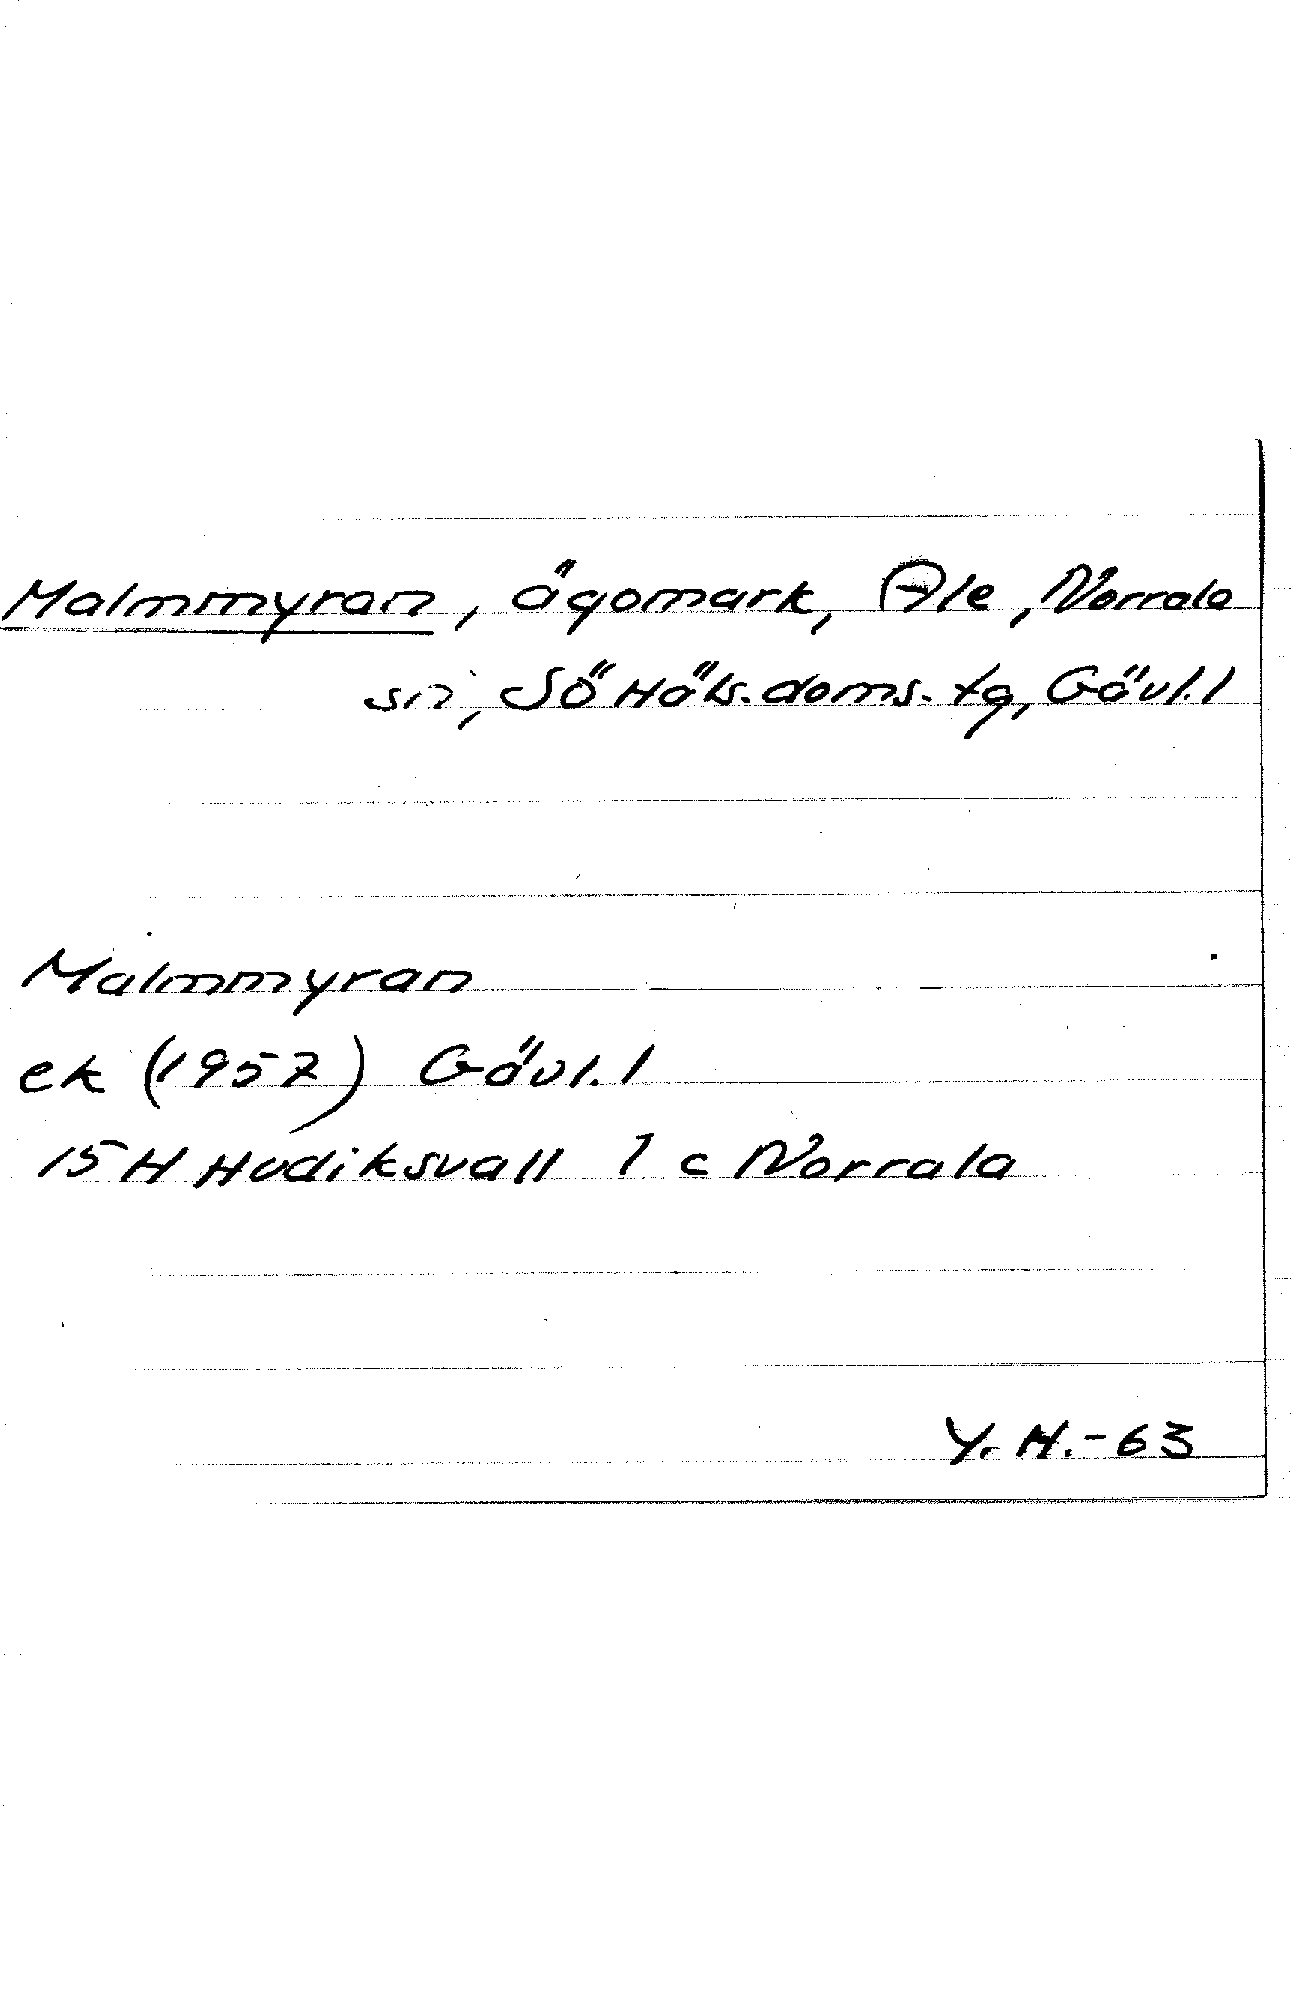 Malmmyran, ägomark, Ale, Norrala
sn, Sö Häls. doms. tg, Gävl. l
Malmmyran
ek (1957) Gävl. l
15 H Hudiksvall 1 c Norrala
Y. H. -63